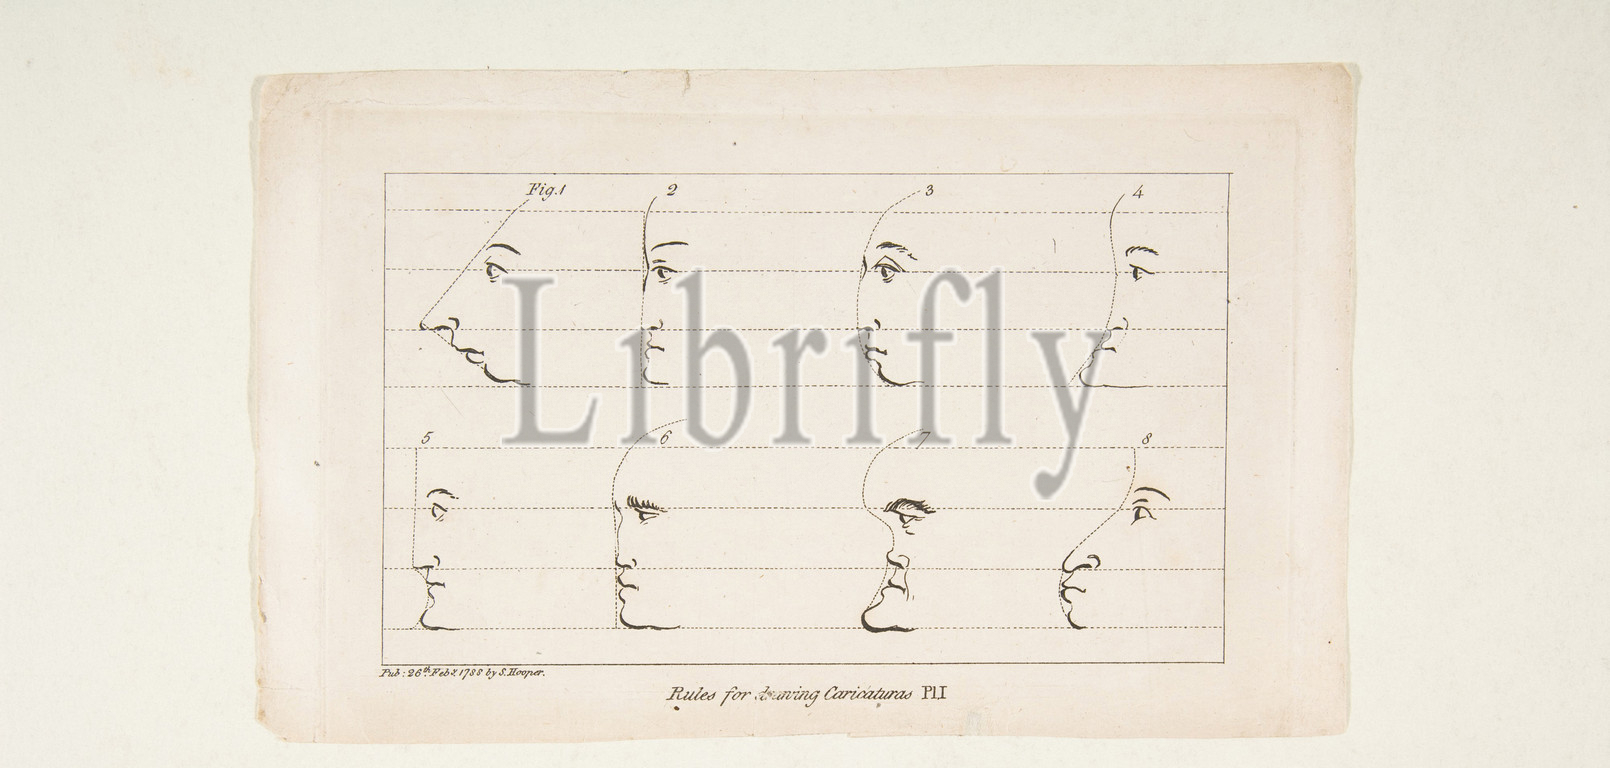 Fig.1 2 3 4
Librifly
5 6 7 8
Pub: 26th Feby 1788 by S. Hooper.
Rules for drawing Caricaturas Pl.I